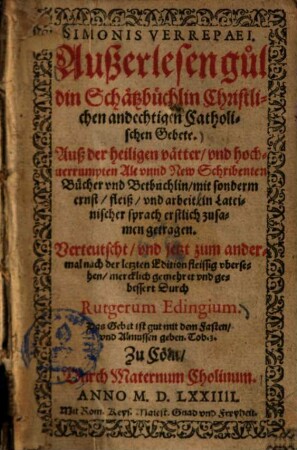 SIMONIS VERREPAEI.
Außerlesen gül
din Schätzbüchlin Christli-
chen andechtigen Catholi-
schen Gebete.
Auß der heiligen vätter/ vnd hoch-
uerrumpten Alt vnnd New Schribenten
Bücher vnd Betbüchlin/ mit sonderm
ernst/ fleiß/ vnd arbeit in Latei-
nischer sprach erstlich zusa-
men getragen.
Verteutscht/ vnd jetzt zum ander-
mal nach der letzten Edition fleissig vberse-
hen/ mercklich gemehret vnd ge-
bessert Durch
Rutgerum Edingium.
Das Gebet ist gut mit dem Fasten/
vnd Almussen geben. Tob.
Zu Cöln/
Durch Maternum Cholinum.
ANNO M. D. LXXIIII.
Mit Röm. Keys. Maiest. Gnad vnd Freyheit.